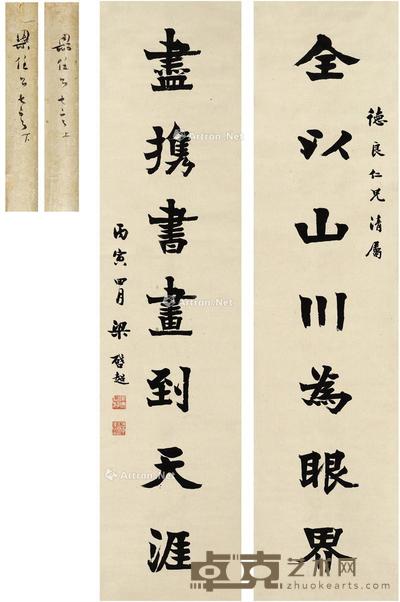 德良仁兄清屬
全以山川為眼界
盡携書畫到天涯
丙寅四月 梁啓超
梁任公七言上
梁任公七言下
Artron.Net
Artron.Net
Artron.Net
Artron.Net
Artron.Net
Artron.Net
卓克艺术网
zhuokearts.com